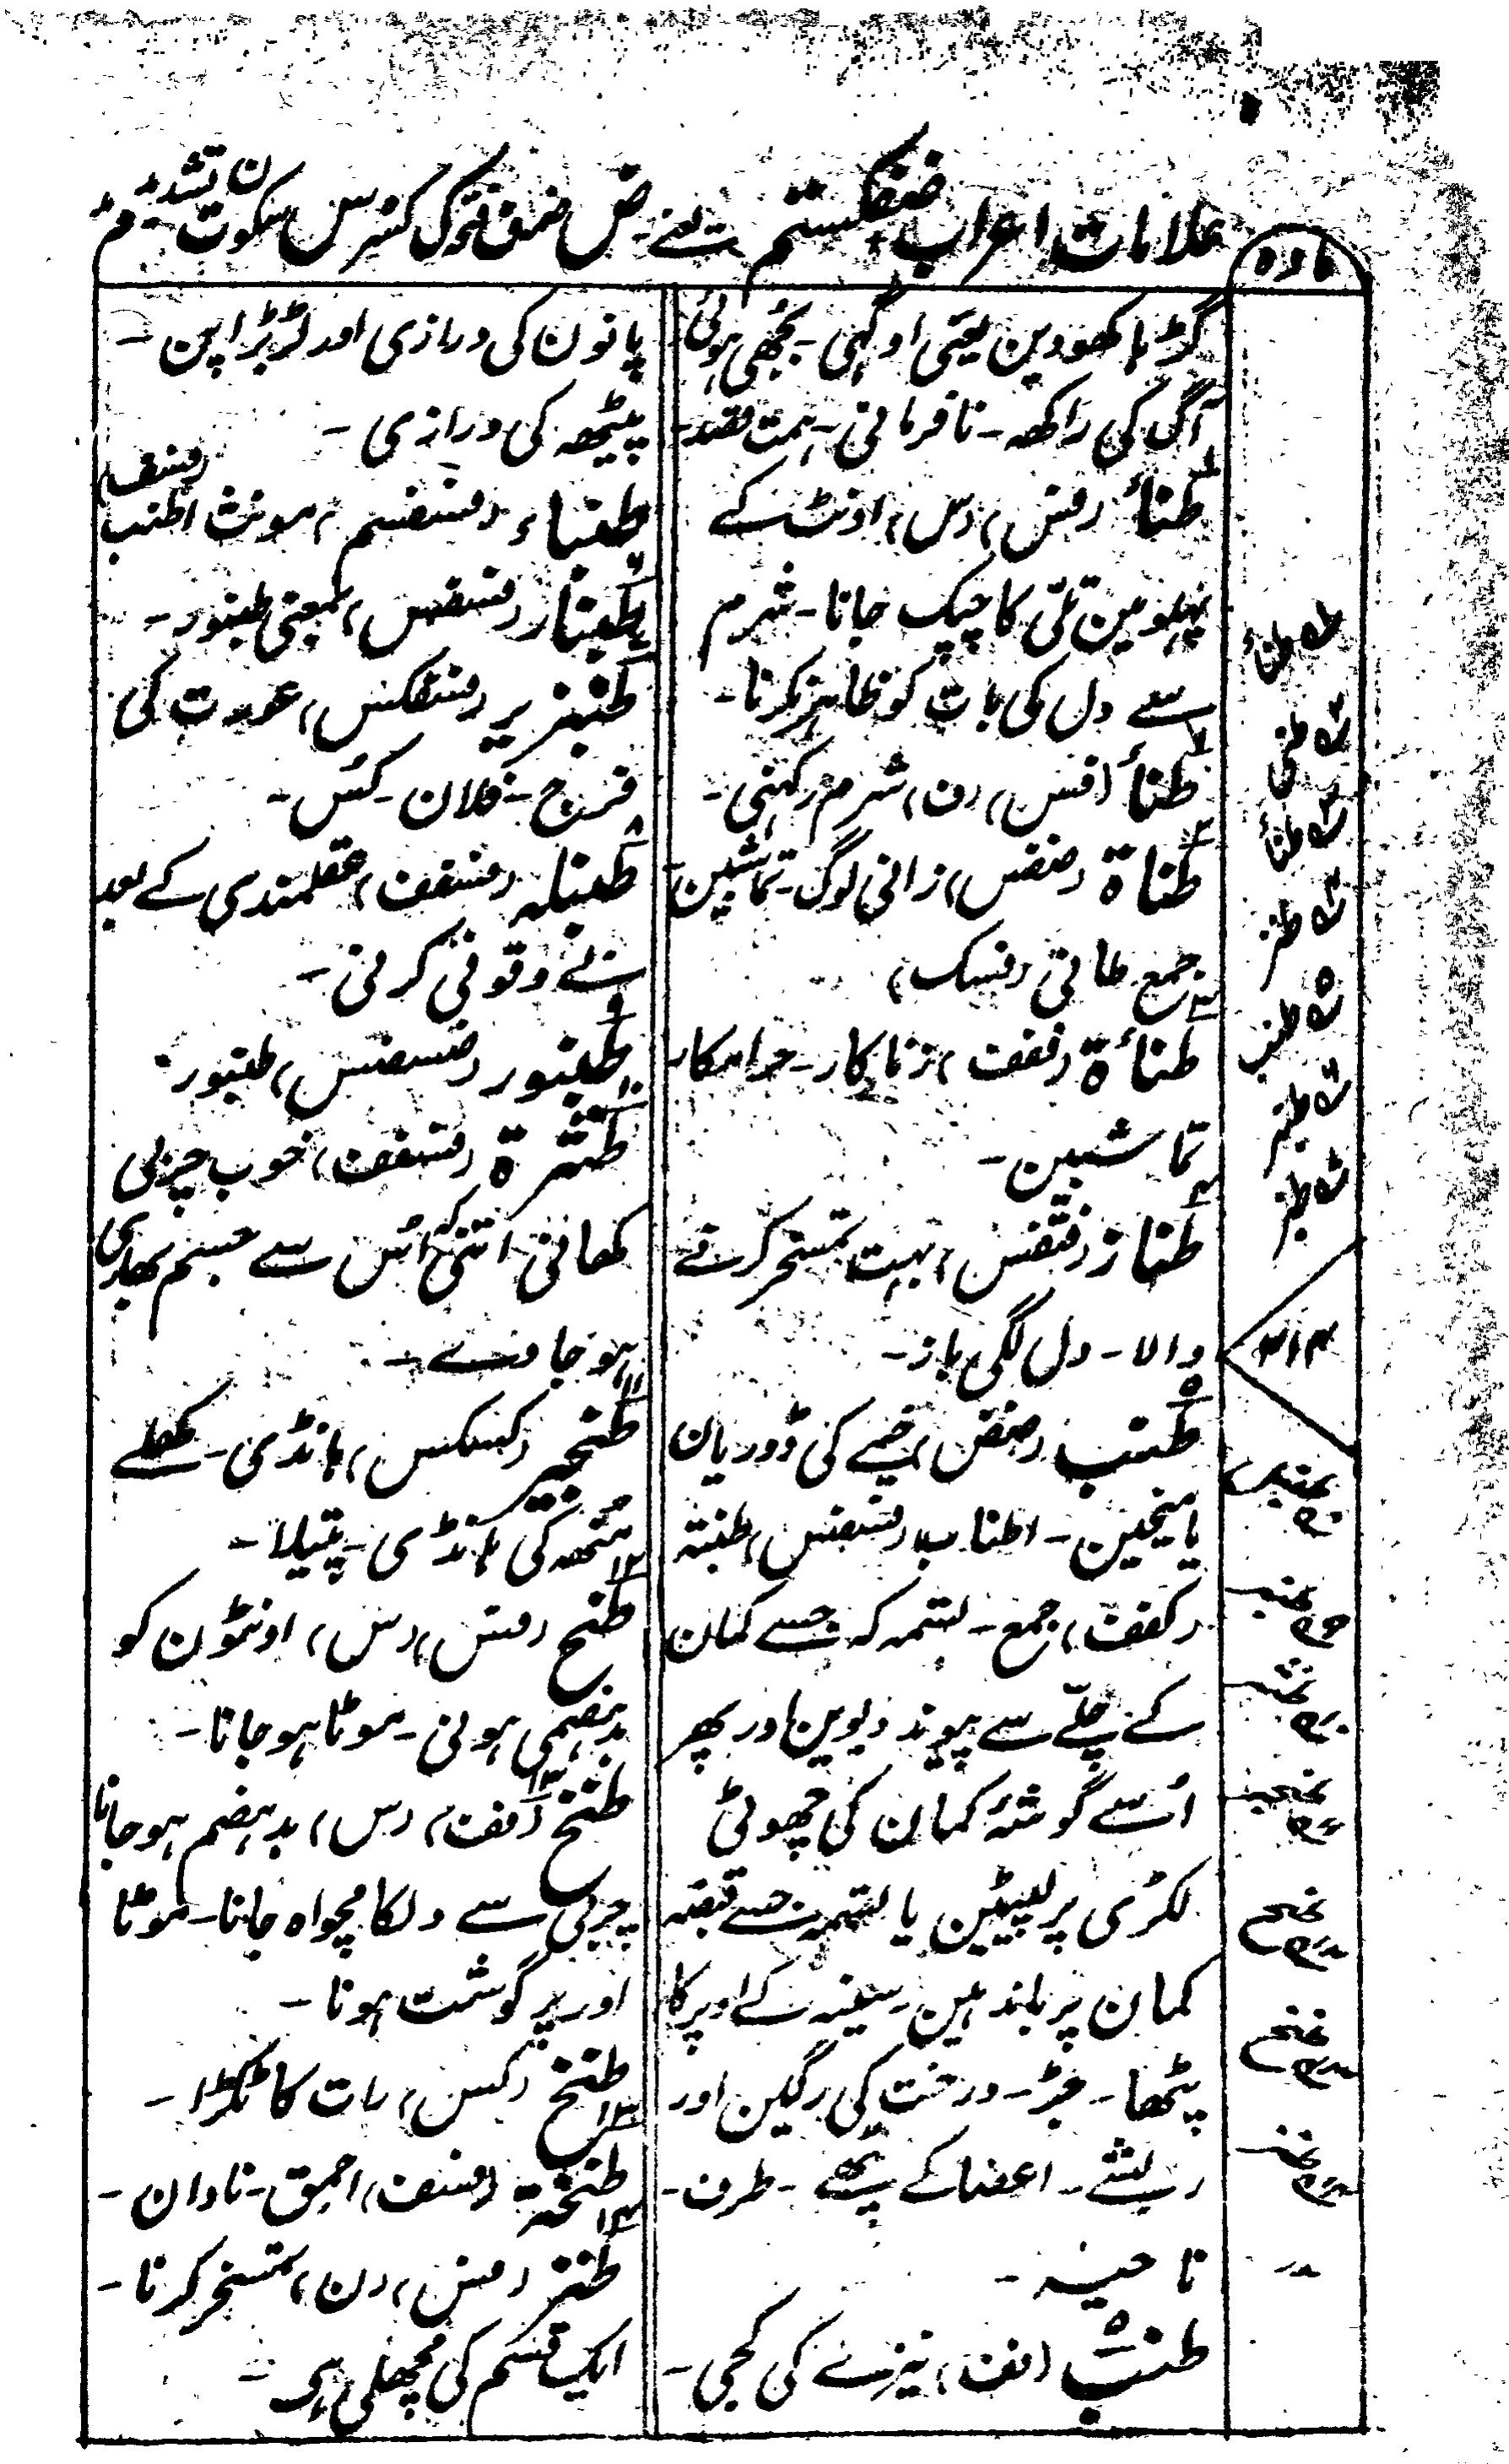 علامات اعراب ضفکستم یعنے ض ضمہ ف فتح ک کسر س سکون ت تشدید م مد
مادہ
گڑہا کھودین یعنی اوگہی - بُجھی ہوئی
آگ کی راکھہ - نافرمانی - ہمت قصد -
طنأ (فس) (س) اونٹ کے
پہلو مین تلّی کا چپک جانا - شرم
سے دل کی بات کو ظاہر نکرنا -
طنأ (فس) (ف) شرم رکہنی -
طناۃ (ضفس) زانی لوگ - تماشبین
جمع طانی (فسک)
طنأۃ (ففف) زناکار - حرامکار
تماشبین -
طناز (فتفس) بہت تمسخر کرنے
والا - دل لگی باز -
طنب (ضض) خیمے کی ڈوریان
یا میخین - اطناب (فسفس) طنبتہ
(کفف) جمع - تسمہ کہ جسے کمان
کے چلّے سے پیوند دیوین اور پھر
اُسے گوشۂ کمان کی چھوٹی
لکڑی پر لپیٹین یا تسمہ جسے قبضہ
کمان پر باندہین - سینہ کے اوپر کا
پٹھا - جڑ - درخت کی رگین اور
ریشے - اعضا کے پٹھے - طرف -
ناحیہ -
طنب (فف) نیزے کی کجی -
پانون کی درازی اور لڑبڑاپن -
پیٹھہ کی درازی -
طنباء (فسفسم) مونث اطنب (فسف)
طنبار (فسفس) بمعنی طنبور -
طنبریر (فسفکس) عورت کی
فرج - فلان - کس -
طنبلہ (فسفف) عقلمندی کے بعد
بے وقوفی کرنی -
طنبور (ضسضس) طنبور -
طنثرۃ (فسفف) خوب چربی
کھانی اتنی کہ اُس سے جسم بھاری
ہو جاوے -
طنجیر (کسکس) ہانڈی - کھلے
منھہ کی ہانڈی - پتیلا -
طنح (فس) (س) اونٹون کو
بدہضمی ہونی - موٹا ہو جانا -
طنخ (فف) (س) بدہضم ہو جانا
چربی سے دلکا مچواہ جانا - موٹا
اور پر گوشت ہونا -
طنخ (کس) رات کا ٹکڑا -
طنخۃ (فسف) احمق - نادان -
طنز (فس) (ن) تمسخر کرنا -
ایک قسم کی مچھلی ہی -
طنأ
طنی
طنأ
طنز
طنب
طنب
طنب
۴۱۴